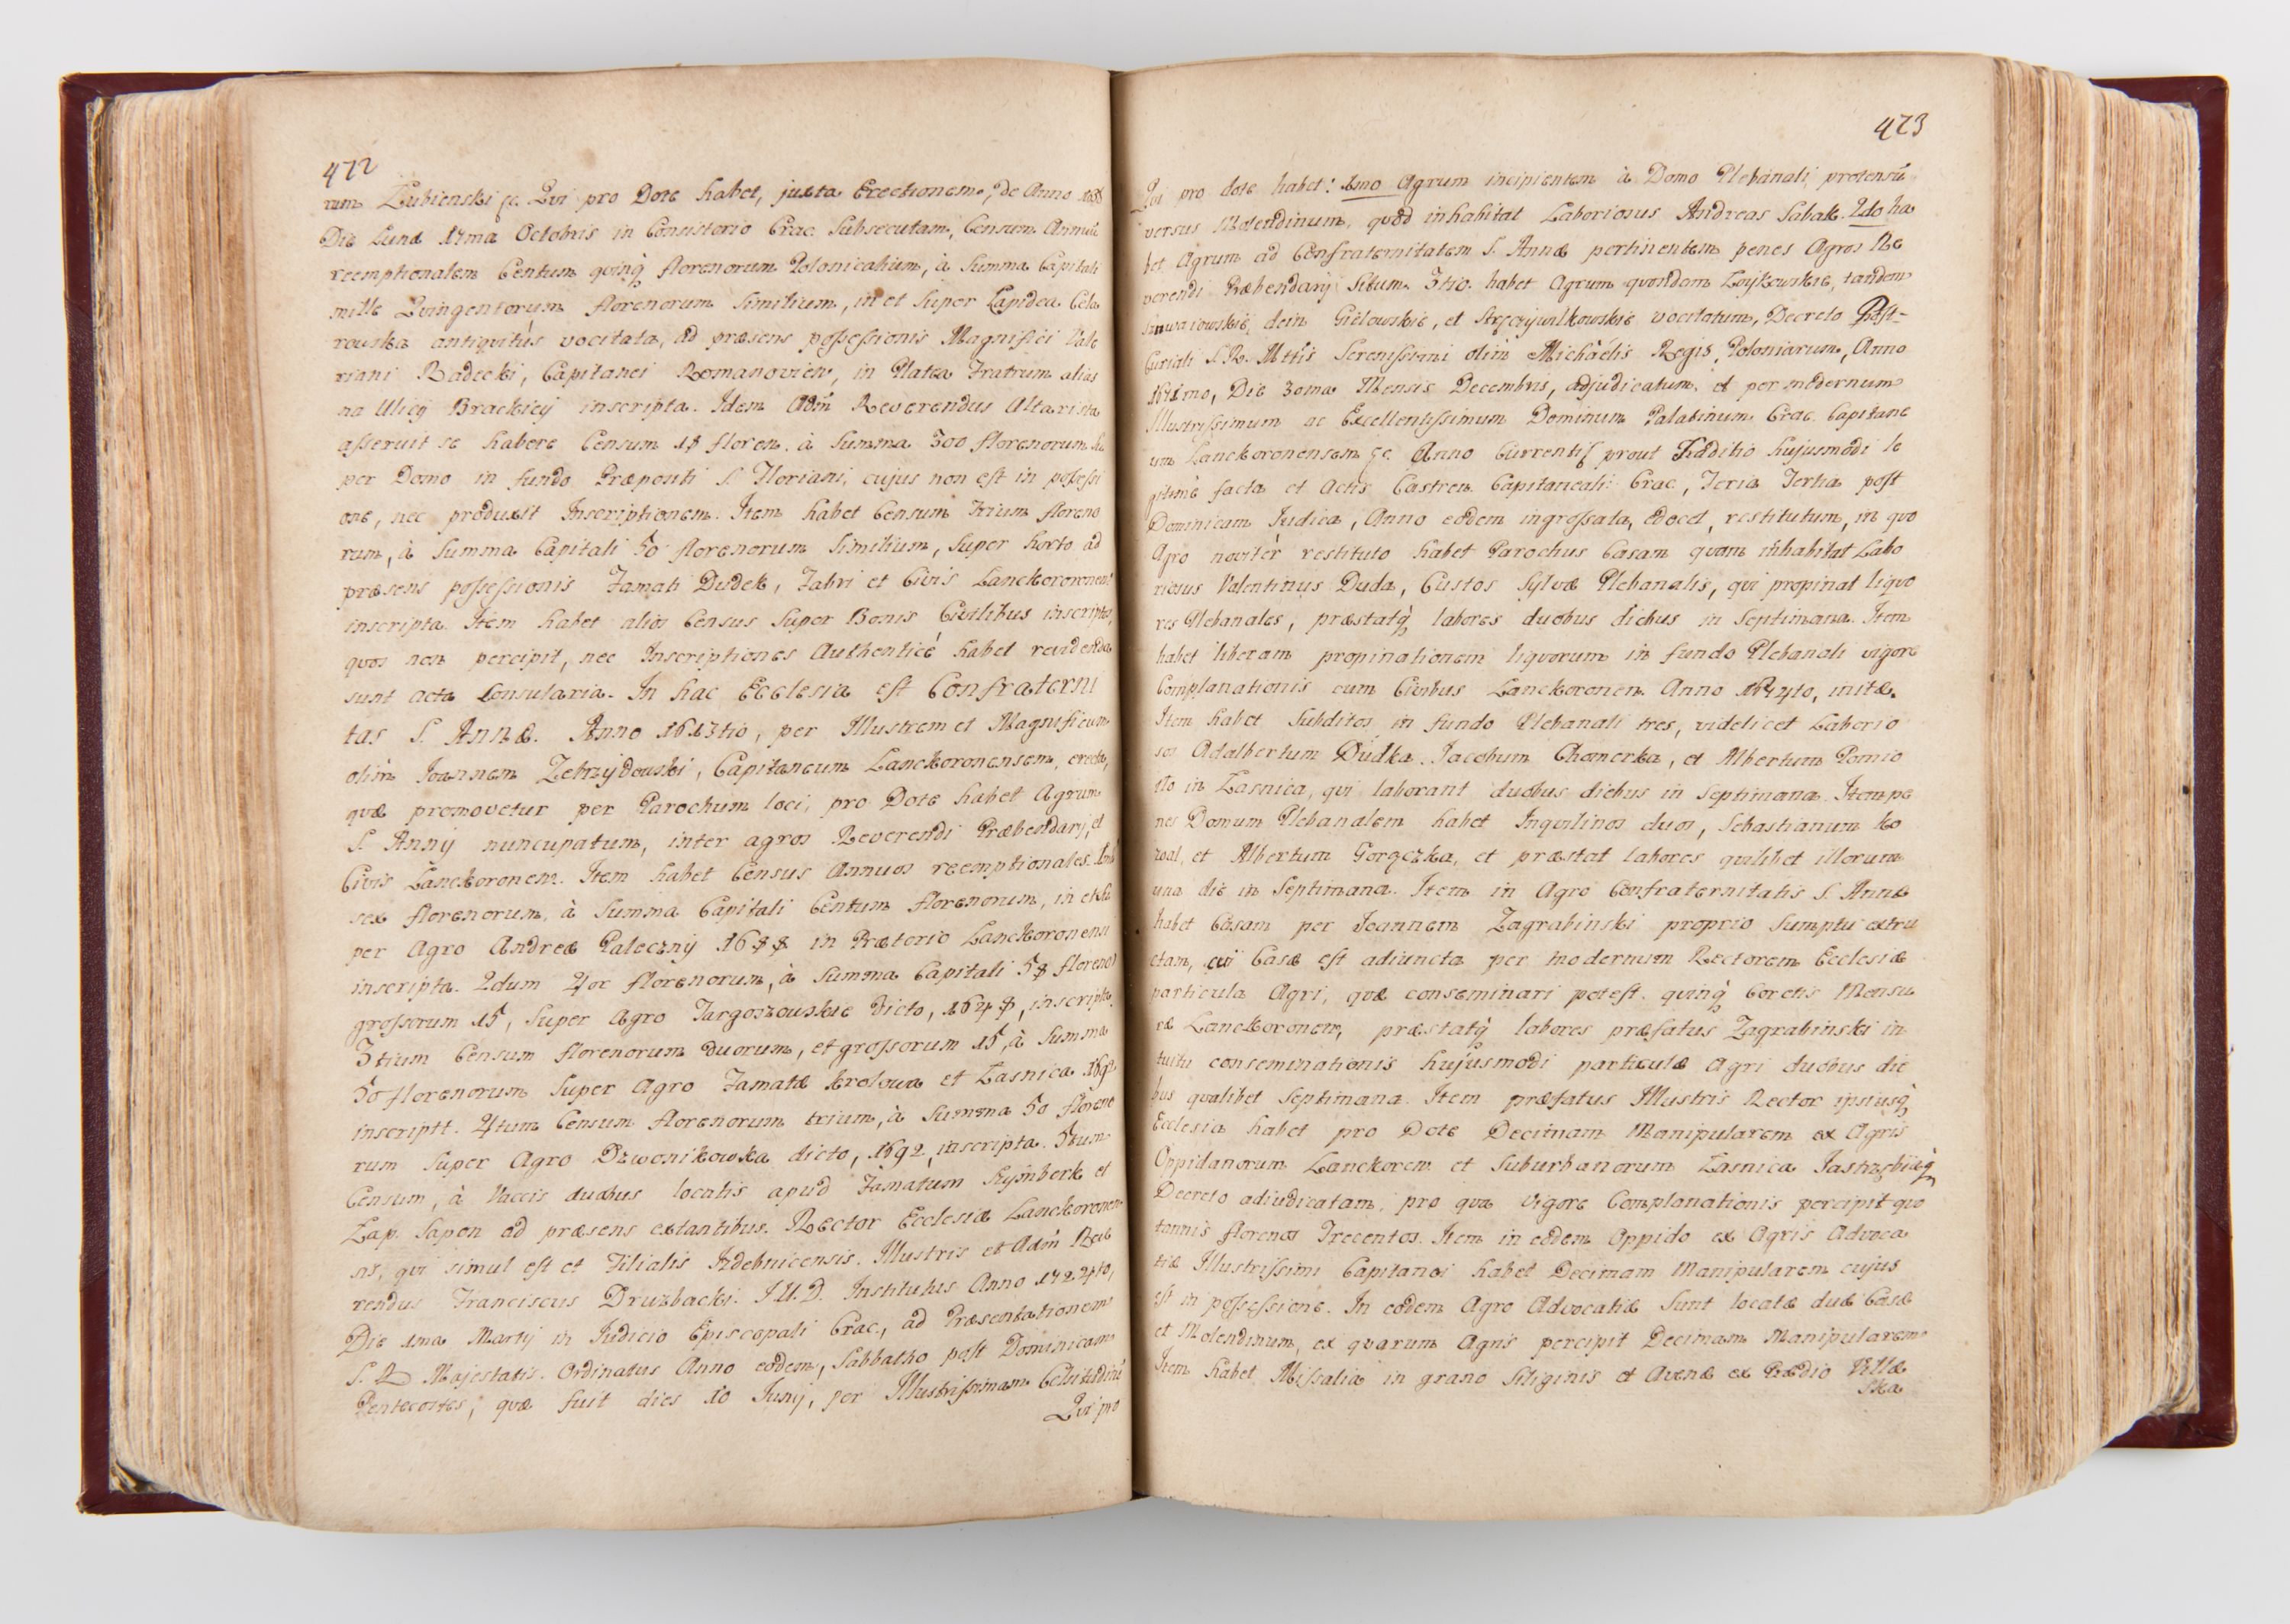 472
rum Łubienski &c. Qui pro Dote habet, juxta Erectionem, de Anno
Die Lunæ 17ma Octobris in Consistorio Crac. Subsecutam, Censum Annuũ
reemptionalem Centum quinq̀ florenorum Polonicalium, à Summa Capitali
mille Quingentorum florenorum Similium, in et Super Lapidea Cela
rowska antiquitùs vocitata, ad præsens possessionis Magnifici Vale
riani Badecki, Capitanei Romanovien, in Platea Fratrum alias
na Ulicy Brackiey inscripta. Idem Adm̃ Reverendus Altarista
asseruit se habere Censum 18 floren. à Summa 300 florenorum Su
per Domo in fundo Præpositi S. Floriani, cujus non est in possessi
one, nec produxit Inscriptionem. Item habet Censum trium floreno
rum, à Summa Capitali 50 florenorum Similium, Super horto ad
præsens possessionis Famati Dudek, Fabri et Civis Lanckoronen
inscripta. Item habet alios Census Super Bonis Civilibus inscriptos,
quos non percipit, nec Inscriptiones Authenticè habet revidendæ
sunt acta Consularia. In hac Ecclesia est Confraterni
tas S. ANNÆ. Anno 1613tio, per Illustrem et Magnificum
olim Joannem Zebrzydowski, Capitaneum Lanckoronensem, erecta,
quæ promovetur per Parochum loci, pro Dote habet Agrum
S. Anny nuncupatum, inter agros Reverendi Præbendarij, et
Civis Lanckoronen. Item habet Census Annuos reemptionales.
sex florenorum, à Summa Capitali Centum florenorum, in et Su
per Agro Andreæ Paleczny 1688 in Prætorio Lanckoronensi
inscripta. 2dum 4or florenorum, à Summa Capitali 58 florenorũ
grossorum 15, Super Agro Targoszowskie dicto, 1648, inscripta.
3tium Censum florenorum duorum, et grossorum 15, à Summa
50 florenorum Super Agro Famatæ Krolowa et Łasnica 1692
inscriptt. 4tum Censum florenorum trium, à Summa 50 floreno
rum Super Agro Dzwonikowska dicto, 1692, inscripta. 5tum
Censum, à Vaccis duabus locatis apud Famatum Szymberk et
Łap. Sapon ad præsens extantibus. Rector Ecclesiæ Lanckoronen
sis, qui simul est et Filialis Izdebnicensis. Illustris et Adm̃ Reve
rendus Franciscus Druzbacki. I.U.D. Institutus Anno 1724to,
Die 1ma Martij in Judicio Episcopali Crac., ad Præsentationem
S. R. Majestatis. Ordinatus Anno eodem, Sabbatho post Dominicam
Pentecostes, quæ fuit dies 10 Junij, per Illustrissimam Celsitudinẽ
Qui pro
423
Qui pro dote habet: 1mo Agrum incipientem à Domo Plebanali, protensũ
versus Molendinum, quod inhabitat Laboriosus Andreas Sabak. 2do ha
bet Agrum ad Confraternitatem S. Annæ pertinentem penes Agros Re
verendi Præbendarij Situm. 3tio. habet Agrum quondam Woytowskie, tandem
dein Gielowskie, et vocitatum, Decreto Post-
Curiali S. R. Mttis Serenissimi olim Michaelis Regis Poloniarum, Anno
1671mo, Die 30ma Mensis Decembris, adjudicatum, et per modernum
Illustrissimum ac Excellentissimum Dominum Palatinum Crac. Capitane
um Lanckoronensem &c. Anno Currenti prout Traditio hujusmodi le
gitimè facta et Actis Castren. Capitaneali: Crac., Feria Tertia post
Dominicam Judica, Anno eodem ingrossata, edocet, restitutum, in quo
Agro novitèr restituto habet Parochus Casam quam inhabitat Labo
riosus Valentinus Duda, Custos Sylvæ Plebanalis, qui propinat liquo
res Plebanales, præstatq̀ labores duobus diebus in Septimana. Item
habet liberam propinationem liquorum in fundo Plebanali vigore
Complanationis cum Civibus Lanckoronen. Anno initæ.
Item habet Subditos in fundo Plebanali tres, videlicet Laborio
sos Adalbertum Dudka. Jacobum Chomerka, et Albertum Pomio
tło in Łasnica, qui laborant duobus diebus in Septimana. Item pe
nes Domum Plebanalem habet Inquilinos duos, Sebastianum Ko
wal, et Albertum Gorączka, et præstat labores quilibet illorum
una die in Septimana. Item in Agro Confraternitatis S. Annæ
habet Casam per Joannem Zagrabinski proprio Sumptu extru
ctam, cui Casæ est adiuncta per modernum Rectorem Ecclesiæ
particula Agri, quæ conseminari potest, quinq̀ Coretis Mensu
ræ Lanckoronen, præstatq̀ labores præfatus Zagrabinski in
tuitu conseminationis hujusmodi particulæ Agri duobus die
bus qualibet Septimana. Item præfatus Illustris Rector ipsiusq̀
Ecclesia habet pro Dote Decimam Manipularem ex Agris
Oppidanorum Lanckoren. et Suburbanorum Łasnica Jastrzębiaq̀
Decreto adiudicatam, pro qua vigore Complanationis percipit quo
tannis florenos Trecentos. Item in eodem Oppido ex Agris Advoca
tiæ Illustrissimi Capitanei habet Decimam Manipularem cujus
est in possessione. In eodem Agro Advocatiæ Sunt locatæ duæ Casæ
et Molendinum, ex quarum Agris percipit Decimam Manipularem
Item habet Missalia in grano Siliginis et Avenæ ex Prædio Villæ
Ska